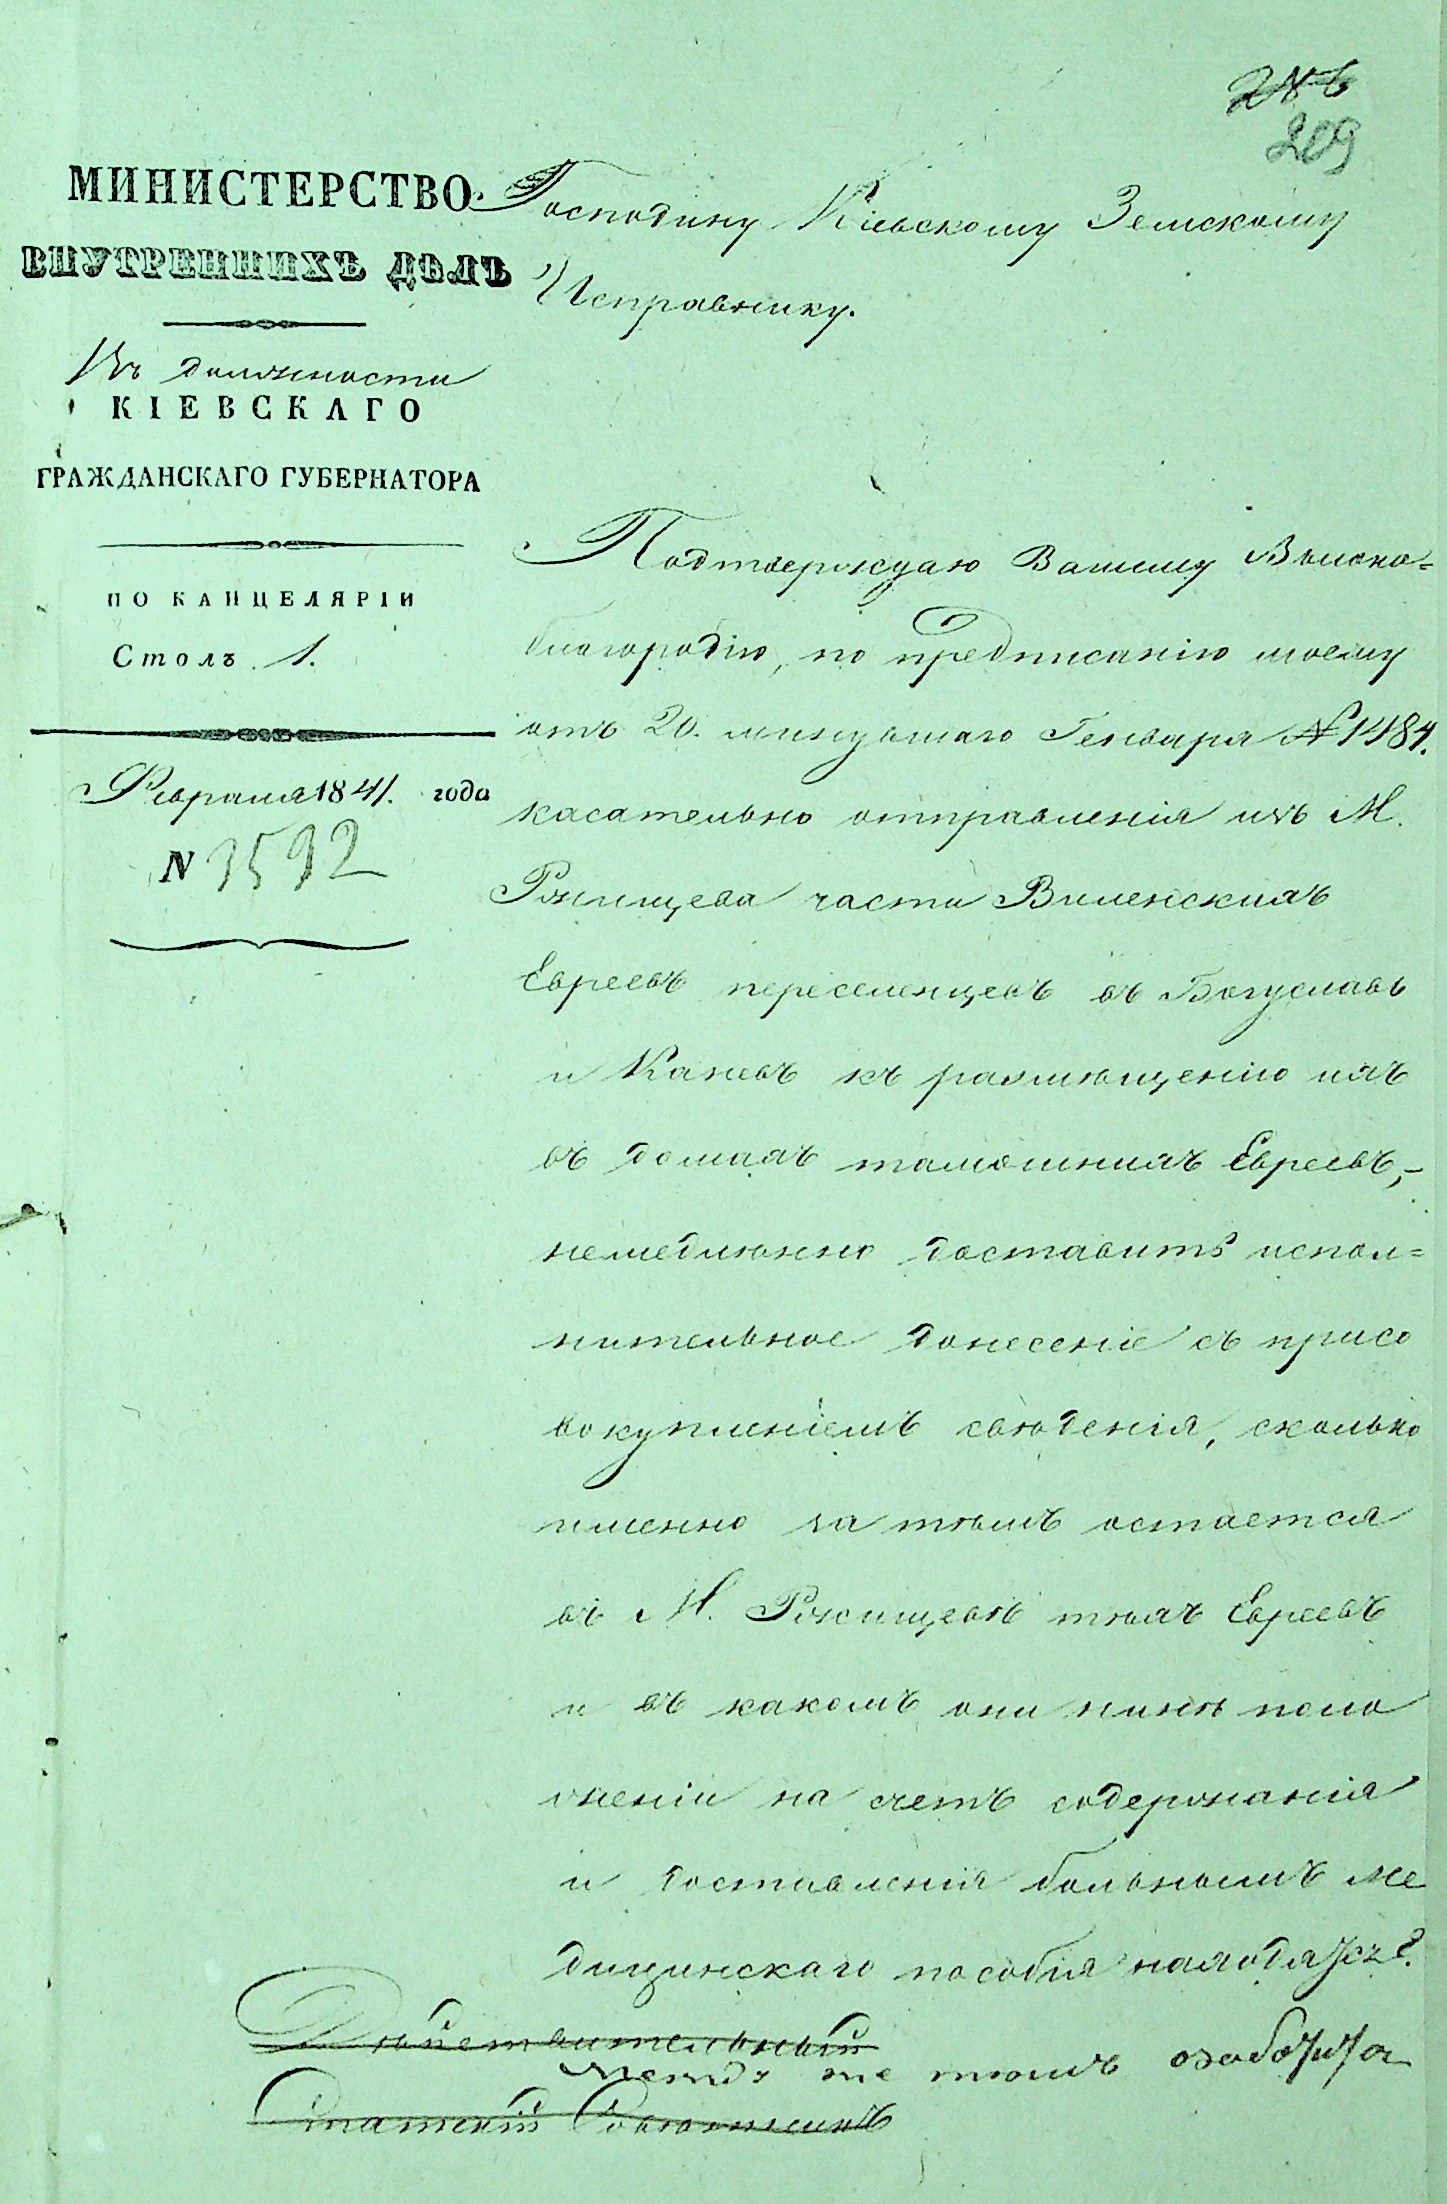 209
МИНИСТЕРСТВО
ВНУТРЕННИХЪ ДѢЛЪ
Въ должности
КІЕВСКАГО
ГРАЖДАНСКАГО ГУБЕРНАТОРА
ПО КАНЦЕЛЯРІИ
Столъ 1.
Февраля 1841. года
N 3592
Господину Кіевскому Земскому
Исправнику.
Подтверждаю Вашему Высоко=
благородію, по предписанію моему
отъ 20. минувшаго Генваря № 1484.
касательно отправленія изъ М.
Ржищева части Виленскихъ
Евреевъ переселенцевъ въ Богуславъ
и Каневъ къ размѣщенію ихъ
въ домахъ тамошнихъ Евреевъ,-
немедлѣнно доставить испол=
нительное донесеніе съ присо
вокупленіемъ свѣденія, сколько
именно за тѣмъ остается
въ М. Ржищевѣ тѣхъ Евреевъ
и въ какомъ они нынѣ поло
женіи на счетъ содержанія
и доставленія больнымъ ме
дицинскаго пособія находятся?
Дѣйствительный
между же тѣмъ озаботита
Статскій Совѣтникъ